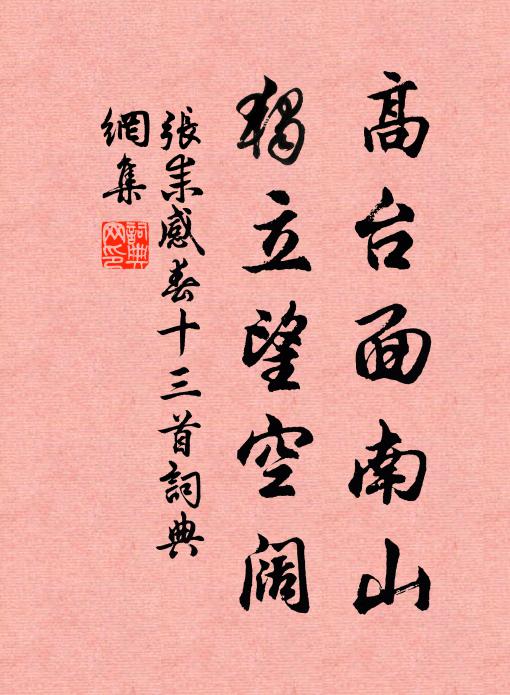 高台面南山
獨立望空阔
張耒感春十三首詞典
網集
詞典
网印